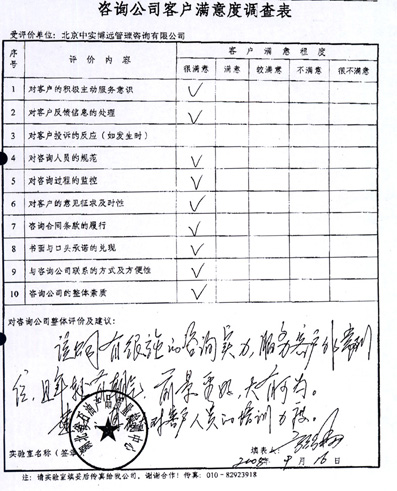 咨询公司客户满意度调查表
受评价单位：北京中实博远管理咨询有限公司
序号 评价内容 客户满意程度
很满意 满意 较满意 不满意 很不满意
1 对客户的积极主动服务意识 ✓
2 对客户反馈信息的处理 ✓
3 对客户投诉的反应（如发生时）
4 对咨询人员的规范 ✓
5 对咨询过程的监控 ✓
6 对客户的意见征求及时性 ✓
7 咨询合同条款的履行 ✓
8 书面与口头承诺的兑现 ✓
9 与咨询公司联系的方式及方便性 ✓
10 咨询公司的整体素质 ✓
对咨询公司整体评价及建议：
该公司有很强的咨询实力，服务客户非常到
位，且 有 前景更好，大有可为。
对客户人员的培训力度。
实验室名称（签章 填表人：
2005 9月16日
注：请实验室填妥后传真给我公司，谢谢合作！传真：010－82923918